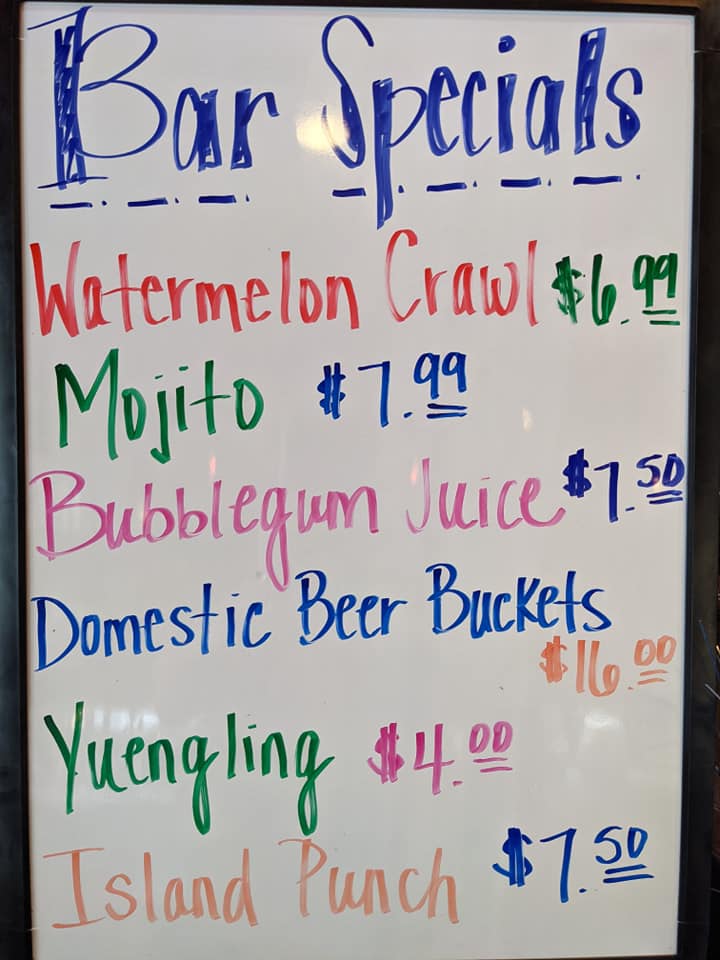 Bar Specials
Watermelon Crawl $6.99
Mojito $7.99
Bubblegum Juice $7.50
Domestic Beer Buckets
$16.00
Yuengling $4.00
Island Punch $7.50